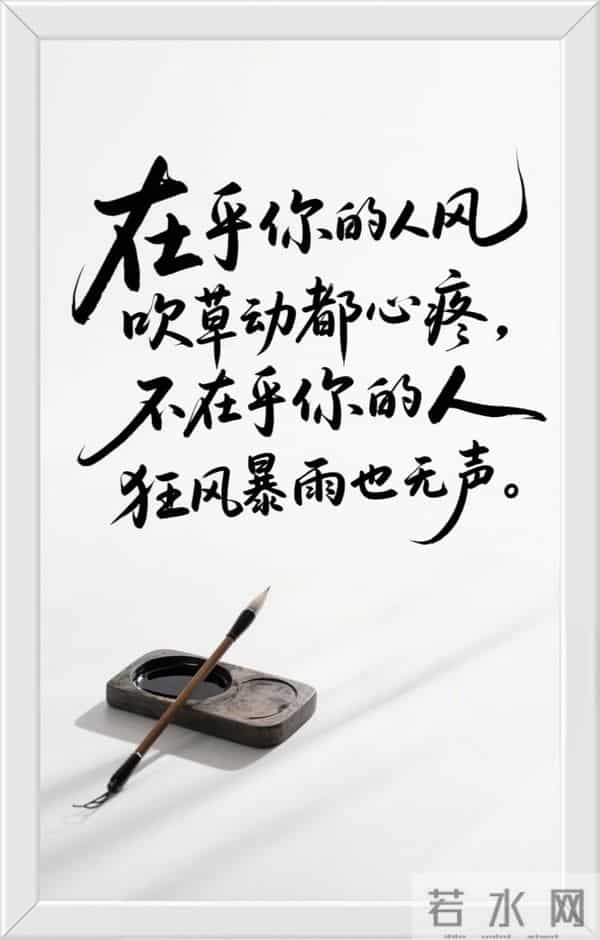 在乎你的人风
吹草动都心疼，
不在乎你的人
狂风暴雨也无声。
若水网